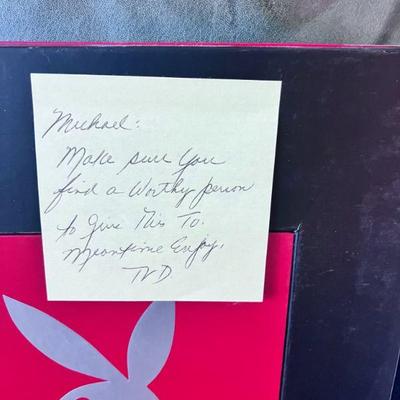 Michael:
Make sure you
find a Worthy person
to Give This To.
Meantime Enjoy.
TVD